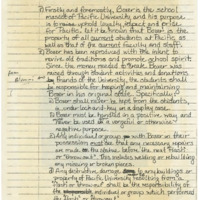 1) Firstly and foremostly, Boxer is the school
mascot of Pacific University and his purpose
is to arouse school loyalty, respect and pride
for Pacific. Let it be known that Boxer is the
property of all current students at Pacific, as
well as that of the current faculty and staff.
2) Boxer has been reproduced with the intent to
maintain old traditions and promote school spirit.
Since the money needed to create Boxer was
raised through student activities and donations
from
Alumni
by friends of the University, the students shall
be responsible for keeping and maintaining
Boxer in his original state. Specifically:
Boxer shall never be kept from the students,
under lock and key or in a display case.
Boxer must be handled in a positive way, and
never be used in a vengeful or otherwise
negative purpose.
Any individual or group with Boxer in their
possession must see that any necessary repairs
are made before the next "flash"
or "throw-out". This includes welding or rebuilding
any missing or broken pieces.
Any destructive damage to buildings or
property of Pacific University resulting from a
"flash" or "throw-out" shall be the responsibility of
the individual or group which performed
the "flash" or "throw-out".